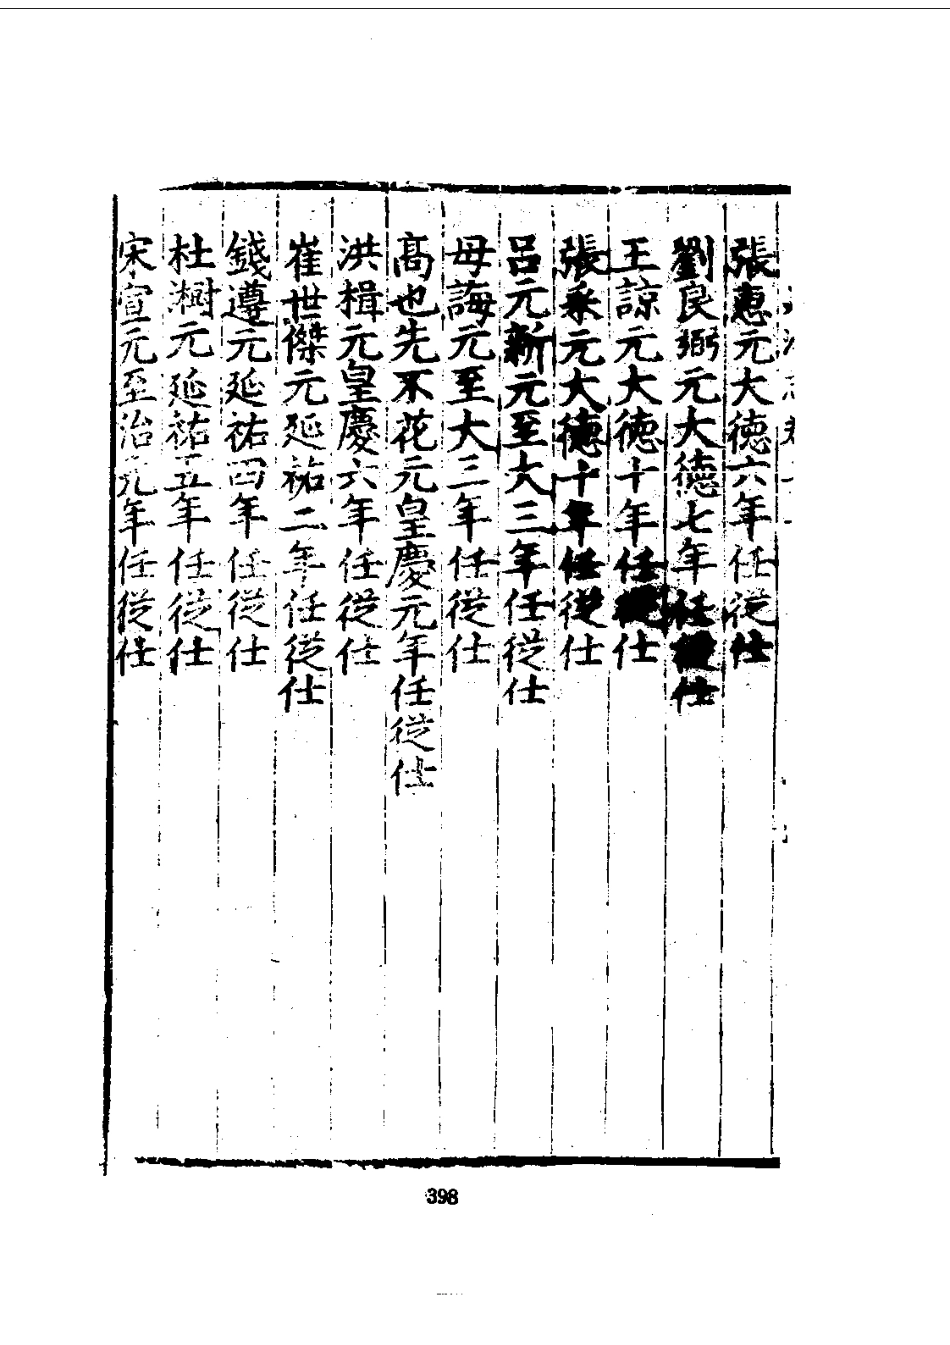 張惠元大德六年任從仕
劉良弼元大德七年任從仕
王諒元大德十年任從仕
張采元大德十年任從仕
呂元新元至大三年任從仕
毋誨元至大三年任從仕
高也先不花元皇慶元年任從仕
洪楫元皇慶六年任從仕
崔世傑元延祐二年任從仕
錢遵元延祐四年任從仕
杜澍元延祐五年任從仕
宋宣元至治元年任從仕
398